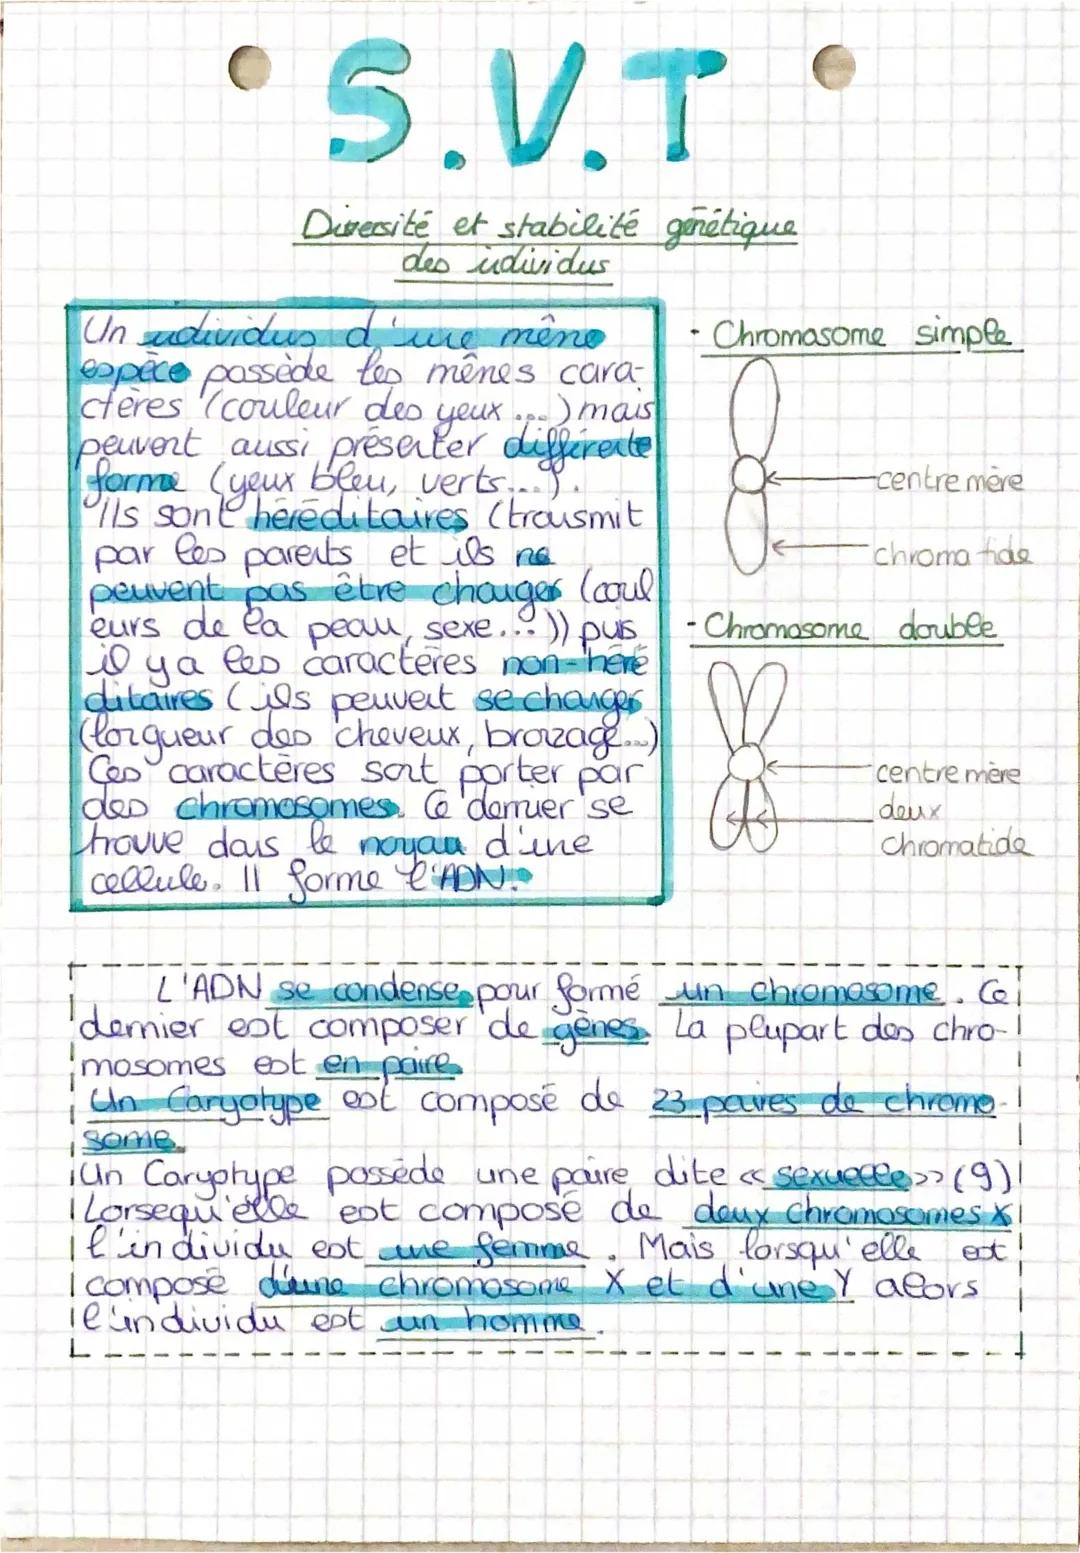 S.V.T
Diversité et stabilité génétique
des individus
Un individus d'une même
espèce possède les mêmes cara-
ctères (couleur des yeux ...) mais
peuvent aussi présenter différente
forme (yeux bleu, verts...).
Ils sont héréditaires (transmit
par les parents et ils ne
peuvent pas être changer (coul
eurs de la peau, sexe...)) puis
il y a les caractères non-héré
ditaires (ils peuvent se changer
(longueur des cheveux, bronzage...)
Ces caractères sont porter par
des chromosomes. Ce dernier se
trouve dans le noyau d'une
cellule. Il forme l'ADN.
- Chromasome simple
centre mère
chromatide
- Chromosome double
centre mère
deux
chromatide
L'ADN se condense pour formé un chromosome. Ce
dernier est composer de gènes. La plupart des chro-
mosomes est en paire.
Un Caryotype est composé de 23 paires de chromo-
some.
Un Caryotype possède une paire dite « sexuelle » (g)
Lorsequ'elle est composé de deux chromosomes X
l'individu est une femme. Mais lorsqu'elle est
composé d'une chromosome X et d'une Y alors
l'individu est un homme.